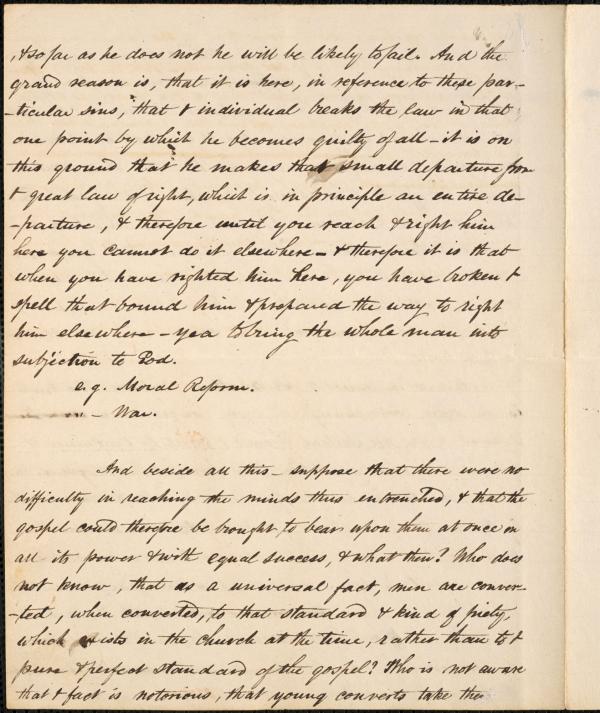 , & so far as he does not he will be likely to fail. And the
grand reason is, that it is here, in reference to these par-
-ticular sins, that t individual breaks the law in that
one point by which he becomes guilty of all - it is on
this ground that he makes that small departure from
t great law of right, which is in principle an entire de-
-parture, & therefore until you reach & right him
here you cannot do it elsewhere - & therefore it is that
when you have righted him here, you have broken t
spell that bound him & prepared the way to right
him elsewhere - yea to bring the whole man into
subjection to God.
e.g. Moral Reform.
" - War.
And beside all this - suppose that there were no
difficulty in reaching the minds thus entrenched, & that the
gospel could therefore be brought to bear upon them at once in
all its power & with equal success, & what then? Who does
not know, that as a universal fact, men are conver-
-ted, when converted, to that standard & kind of piety,
which exists in the church at the time, rather than to t
pure & perfect standard of the gospel? Who is not aware
that t fact is notorious, that young converts take the